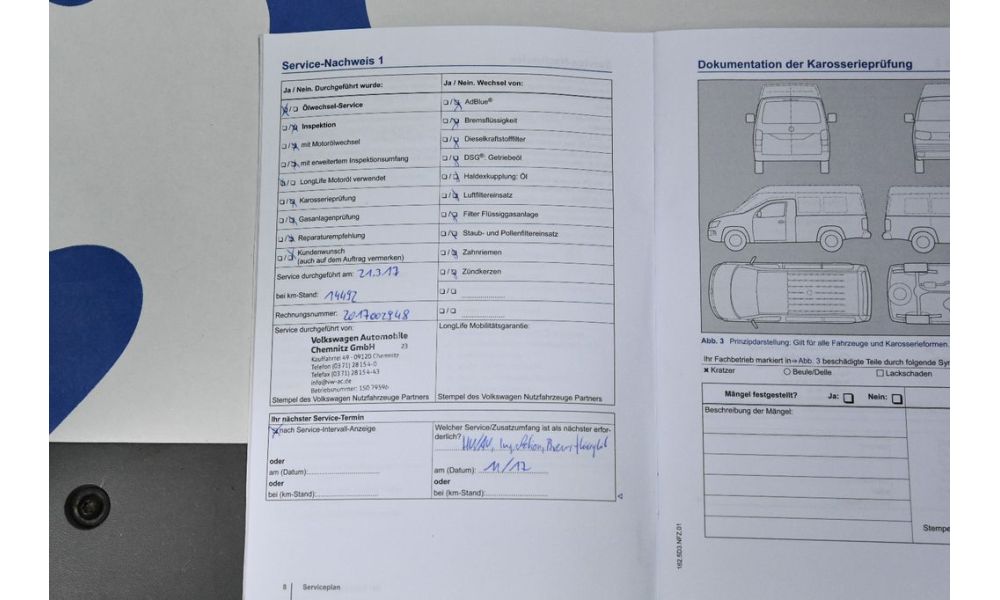 Service-Nachweis 1
Ja / Nein. Durchgeführt wurde:
Ölwechsel-Service
Inspektion
mit Motorölwechsel
mit erweitertem Inspektionsumfang
LongLife Motoröl verwendet
Karosserieprüfung
Gasanlagenprüfung
Reparaturempfehlung
Kundenwunsch
(auch auf dem Auftrag vermerken)
Service durchgeführt am: 21.3.17
bei km-Stand: 14492
Rechnungsnummer: 2017002948
Service durchgeführt von:
Volkswagen Automobile
Chemnitz GmbH 23
Kauffahrtei 49 - 09120 Chemnitz
Telefon (03 71) 28 15 4-0
Telefax (03 71) 28 15 4-43
info@vw-ac.de
Betriebsnummer: 150 79596
Stempel des Volkswagen Nutzfahrzeuge Partners
Ja / Nein. Wechsel von:
AdBlue®
Bremsflüssigkeit
Dieselkraftstofffilter
DSG®: Getriebeöl
Haldexkupplung: Öl
Luftfiltereinsatz
Filter Flüssiggasanlage
Staub- und Pollenfiltereinsatz
Zahnriemen
Zündkerzen
LongLife Mobilitätsgarantie:
Stempel des Volkswagen Nutzfahrzeuge Partners
Ihr nächster Service-Termin
nach Service-Intervall-Anzeige
oder
am (Datum):
oder
bei (km-Stand):
Welcher Service/Zusatzumfang ist als nächster erfor-
derlich? HU/AU, Inspektion, Bremsflüssigkeit
am (Datum): 11/17
oder
bei (km-Stand):
8 Serviceplan
Dokumentation der Karosserieprüfung
Abb. 3 Prinzipdarstellung: Gilt für alle Fahrzeuge und Karosserieformen.
Ihr Fachbetrieb markiert in ⇒ Abb. 3 beschädigte Teile durch folgende
Kratzer
Beule/Delle
Lackschaden
Mängel festgestellt? Ja: Nein:
Beschreibung der Mängel:
162.5D3.NFZ.01